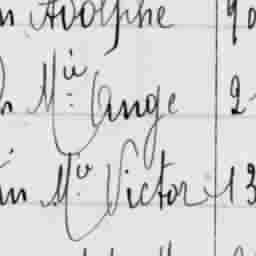 n Adolphe 90
n M^ie Ange 2
in M^ie Victor 13